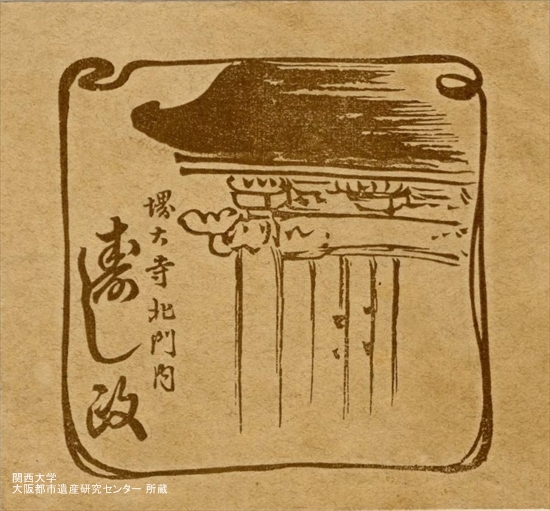 堺大寺北門内
寿し政
関西大学
大阪都市遺産研究センター 所蔵